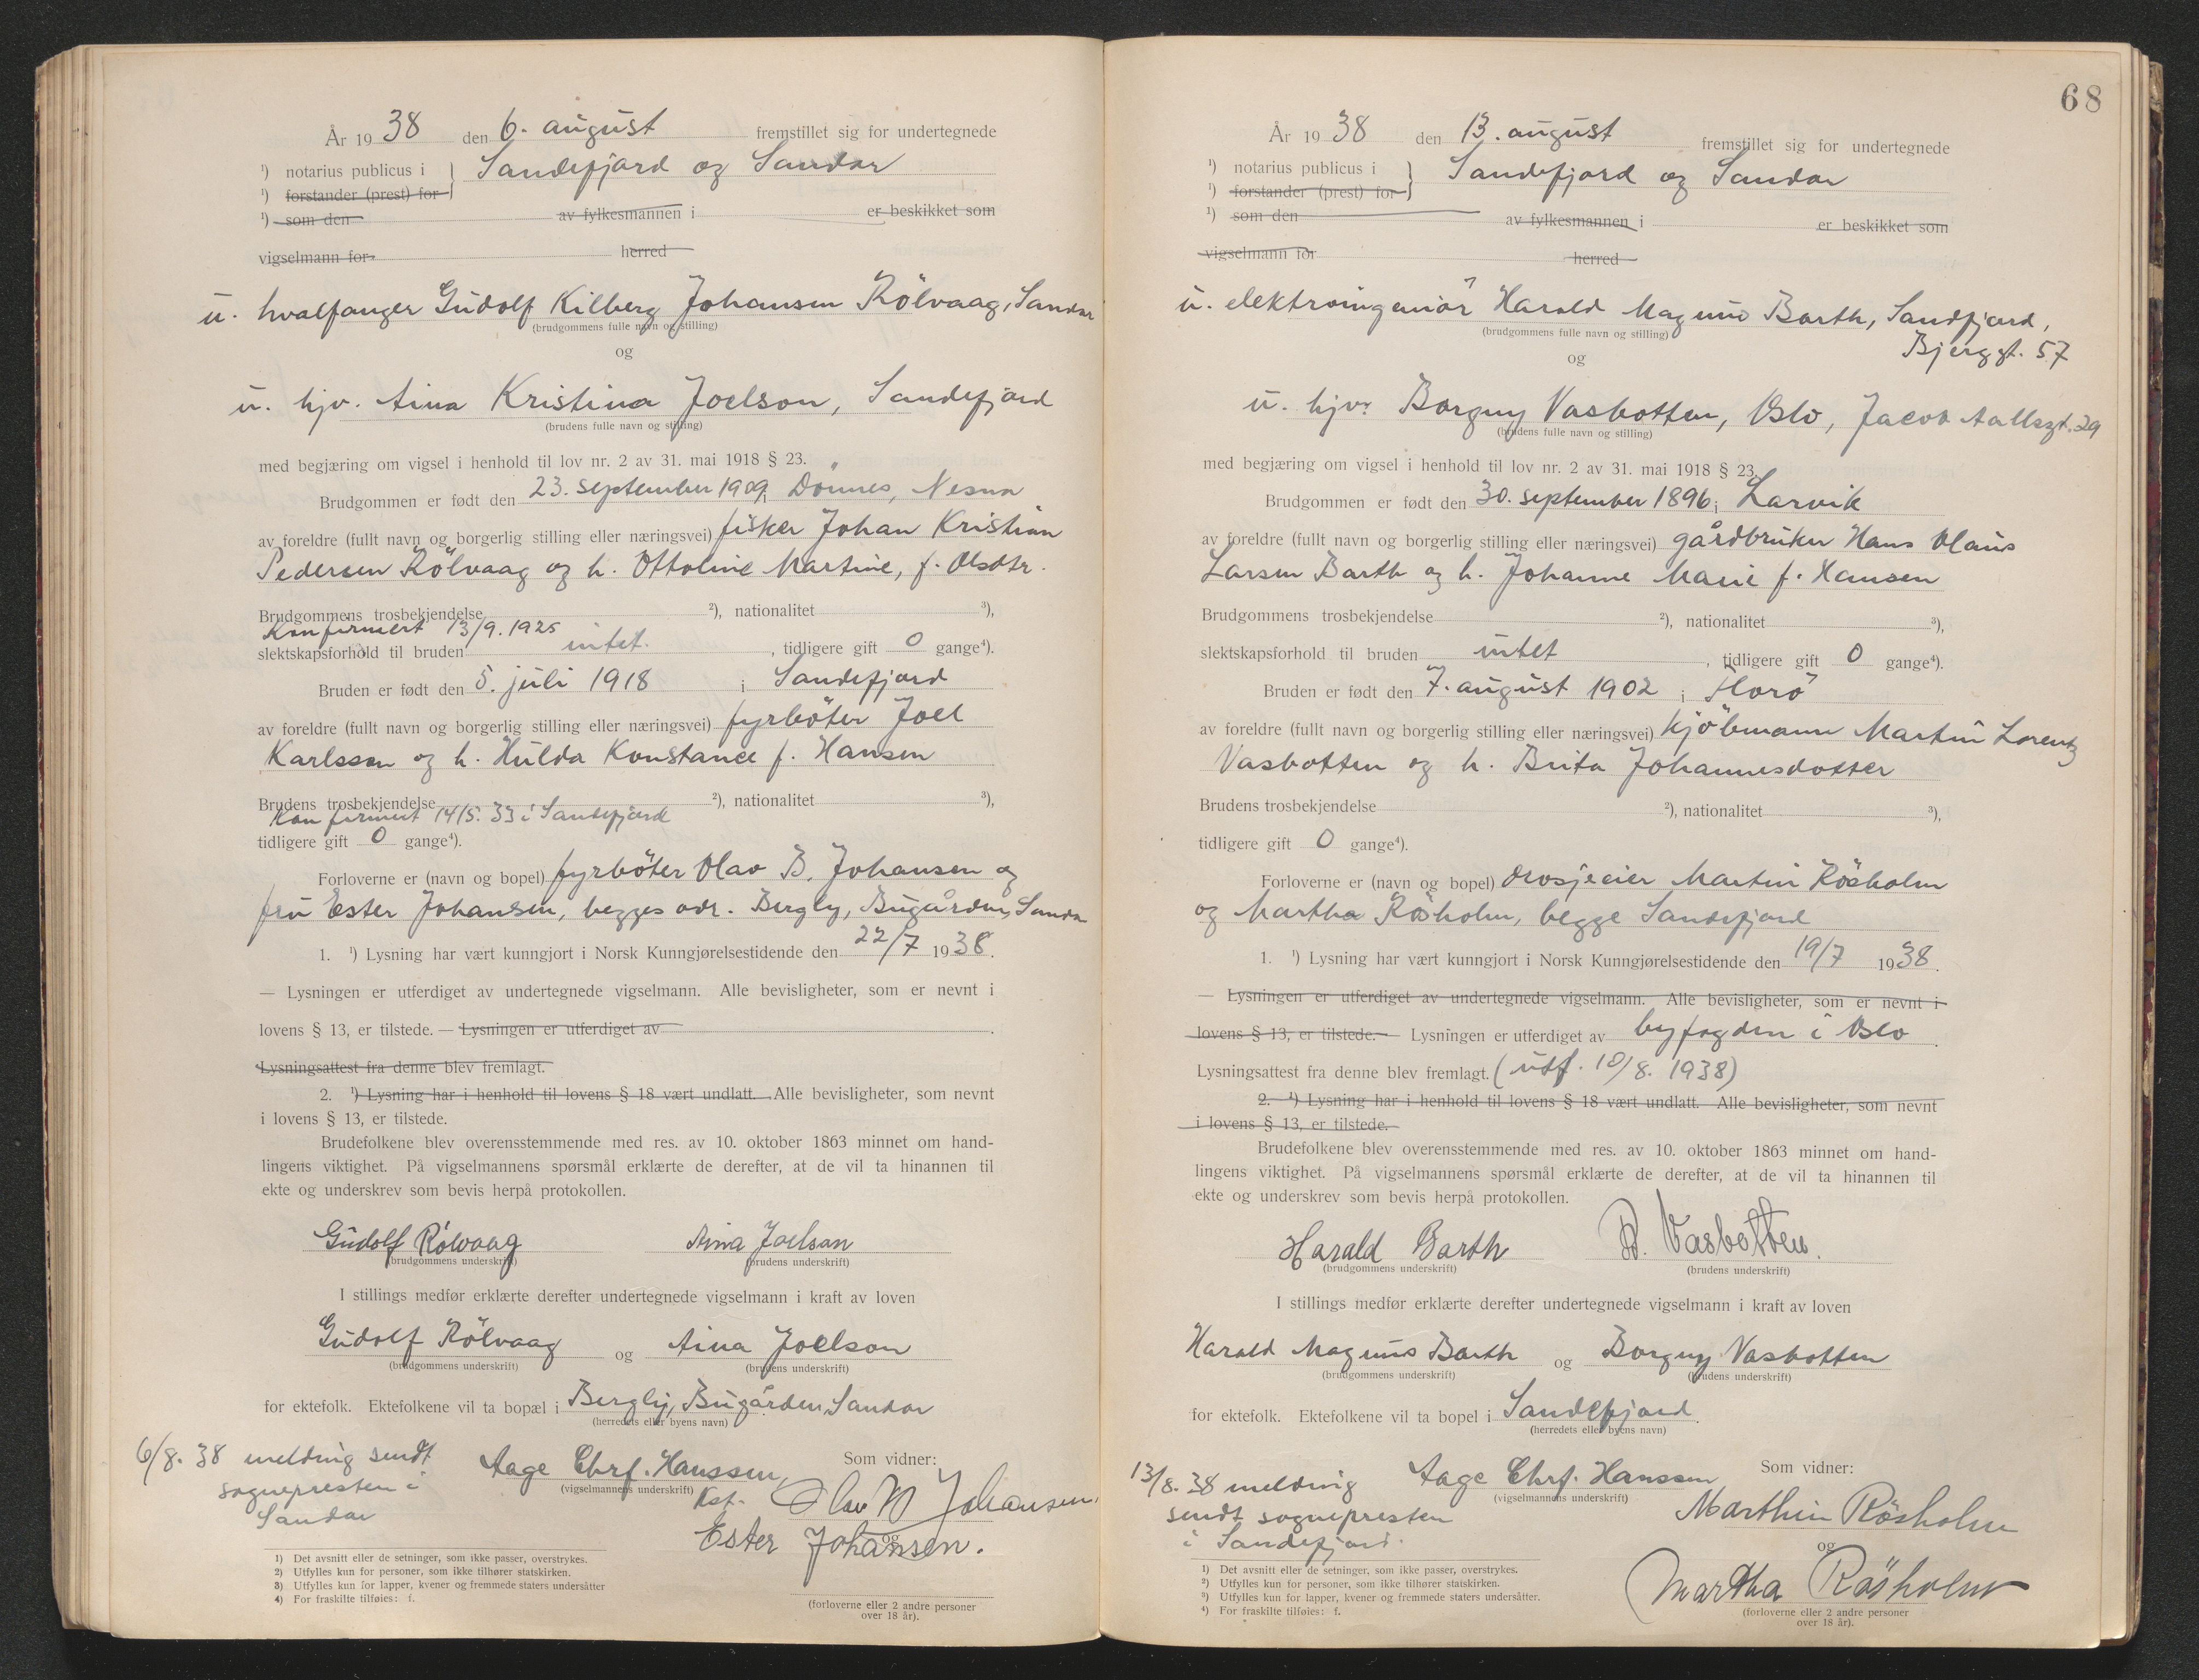 År 19 38 den 6. august fremstillet sig for undertegnede
¹) notarius publicus i } Sandefjord og Sandar
¹) forstander (prest) for
¹) som den av fylkesmannen i er beskikket som
vigselmann for herred
u. hvalfanger Gudolf Kilberg Johansen Rölvaag, Sandar
(brudgommens fulle navn og stilling)
og
u. hjv. Aina Kristina Joelson, Sandefjord
(brudens fulle navn og stilling)
med begjæring om vigsel i henhold til lov nr. 2 av 31. mai 1918 § 23.
Brudgommen er født den 23. september 1909 i Dönnes, Nesna
av foreldre (fullt navn og borgerlig stilling eller næringsvei) fisker Johan Kristian
Pedersen Rölvaag og h. Ottoline Martine, f. Olsdtr.
Brudgommens trosbekjendelse ²), nationalitet ³),
Konfirmert 13/9. 1925
slektskapsforhold til bruden intet. , tidligere gift 0 gange⁴).
Bruden er født den 5. juli 1918 i Sandefjord
av foreldre (fullt navn og borgerlig stilling eller næringsvei) fyrböter Joel
Karlsson og h. Hulda Konstance f. Hansen
Brudens trosbekjendelse ²), nationalitet ³),
Konfirmert 14/5. 33 i Sandefjord
tidligere gift 0 gange⁴).
Forloverne er (navn og bopel) fyrböter Olav B. Johansen og
fru Ester Johansen, begges adr. Bergly, Bugården, Sandar
1. ¹) Lysning har vært kunngjort i Norsk Kunngjørelsestidende den 22/7 1938.
— Lysningen er utferdiget av undertegnede vigselmann. Alle bevisligheter, som er nevnt i
lovens § 13, er tilstede. — Lysningen er utferdiget av .
Lysningsattest fra denne blev fremlagt.
2. ¹) Lysning har i henhold til lovens § 18 vært undlatt. Alle bevisligheter, som nevnt
i lovens § 13, er tilstede.
Brudefolkene blev overensstemmende med res. av 10. oktober 1863 minnet om hand-
lingens viktighet. På vigselmannens spørsmål erklærte de derefter, at de vil ta hinannen til
ekte og underskrev som bevis herpå protokollen.
Gudolf Rölvaag Aina Joelson
(brudgommens underskrift) (brudens underskrift)
I stillings medfør erklærte derefter undertegnede vigselmann i kraft av loven
Gudolf Rölvaag og Aina Joelson
(brudgommens underskrift) (brudens underskrift)
for ektefolk. Ektefolkene vil ta bopæl i Bergly, Bugården, Sandar
(herredets eller byens navn)
6/8. 38 melding sendt
sognepresten i
Sandar
Aage Chrf. Hanssen,
(vigselmannens underskrift) Kst.
Som vidner:
Olav B Johansen.
og
Ester Johansen.
(forloverne eller 2 andre personer
over 18 år).
1) Det avsnitt eller de setninger, som ikke passer, overstrykes.
2) Utfylles kun for personer, som ikke tilhører statskirken.
3) Utfylles kun for lapper, kvener og fremmede staters undersåtter
4) For fraskilte tilføies: f.
68
År 19 38 den 13. august fremstillet sig for undertegnede
¹) notarius publicus i } Sandefjord og Sandar
¹) forstander (prest) for
¹) som den av fylkesmannen i er beskikket som
vigselmann for herred
u. elektroingeniör Harald Magnus Barth, Sandefjord,
Bjerggt. 57
(brudgommens fulle navn og stilling)
og
u. hjv. Borgny Vasbotten, Oslo, Jacob Aallsgt. 29
(brudens fulle navn og stilling)
med begjæring om vigsel i henhold til lov nr. 2 av 31. mai 1918 § 23.
Brudgommen er født den 30. september 1896 i Larvik
av foreldre (fullt navn og borgerlig stilling eller næringsvei) gårdbruker Hans Olaus
Larsen Barth og h. Johanne Marie f. Hansen
Brudgommens trosbekjendelse ²), nationalitet ³),
slektskapsforhold til bruden intet , tidligere gift 0 gange⁴).
Bruden er født den 7. august 1902 i Florö
av foreldre (fullt navn og borgerlig stilling eller næringsvei) kjöbmann Martin Lorentz
Vasbotten og h. Brita Johannesdotter
Brudens trosbekjendelse ²), nationalitet ³),
tidligere gift 0 gange⁴).
Forloverne er (navn og bopel) drosjeeier Martin Rösholm
og Martha Rösholm, begge Sandefjord
1. ¹) Lysning har vært kunngjort i Norsk Kunngjørelsestidende den 19/7 1938.
— Lysningen er utferdiget av undertegnede vigselmann. Alle bevisligheter, som er nevnt i
lovens § 13, er tilstede. — Lysningen er utferdiget av byfogden i Oslo.
Lysningsattest fra denne blev fremlagt. (utf. 10/8. 1938)
2. ¹) Lysning har i henhold til lovens § 18 vært undlatt. Alle bevisligheter, som nevnt
i lovens § 13, er tilstede.
Brudefolkene blev overensstemmende med res. av 10. oktober 1863 minnet om hand-
lingens viktighet. På vigselmannens spørsmål erklærte de derefter, at de vil ta hinannen til
ekte og underskrev som bevis herpå protokollen.
Harald Barth B. Vasbotten.
(brudgommens underskrift) (brudens underskrift)
I stillings medfør erklærte derefter undertegnede vigselmann i kraft av loven
Harald Magnus Barth og Borgny Vasbotten
(brudgommens underskrift) (brudens underskrift)
for ektefolk. Ektefolkene vil ta bopel i Sandefjord.
(herredets eller byens navn)
13/8. 38 melding
sendt sognepresten
i Sandefjord.
Aage Chrf. Hanssen
(vigselmannens underskrift)
Som vidner:
Marthin Rösholm
og
Martha Rösholm
(forloverne eller 2 andre personer
over 18 år).
¹) Det avsnitt eller de setninger, som ikke passer, overstrykes.
²) Utfylles kun for personer, som ikke tilhører statskirken.
³) Utfylles kun for lapper, kvener og fremmede staters undersåtter.
⁴) For fraskilte tilføies: f.